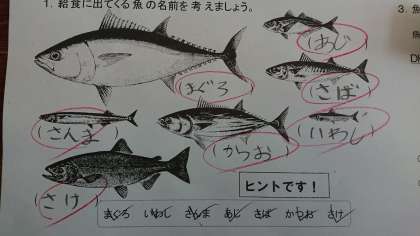 1. 給食に出てくる魚の名前を考えましょう。
3. 魚
(あじ)
(まぐろ)
(さば)
(さんま)
(かつお)
(いわし)
(さけ)
ヒントです！
まぐろ いわし さんま あじ さば かつお さけ